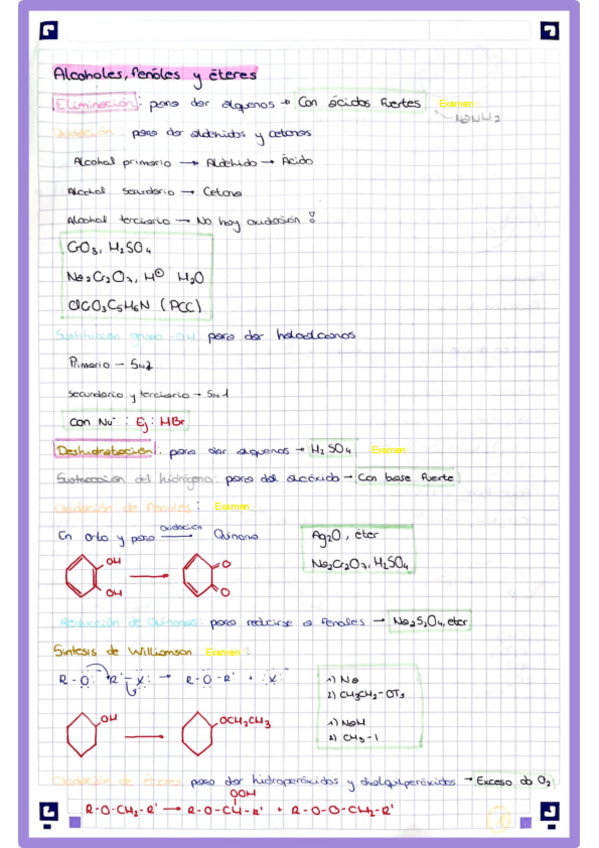 Alcoholes, fenoles y éteres
Eliminación: para dar alquenos → Con ácidos fuertes Examen
NaNH2
Oxidación para dar aldehídos y cetonas
Alcohol primario → Aldehído → Ácido
Alcohol secundario → Cetona
Alcohol terciario → No hay oxidación!
CrO3, H2SO4
Na2Cr2O7, H⊕ H2O
ClCrO3C5H6N (PCC)
Sustitución grupo -OH para dar haloalcanos
Primario – SN2
Secundario y terciario → SN1
Con Nu⁻ : Ej: HBr
Deshidratación: para dar alquenos → H2SO4 Examen
Sustracción del hidrógeno: para dar alcóxido → Con base fuerte
Oxidación de Fenoles: Examen
En orto y para oxidación → Quinona
Ag2O, éter
Na2Cr2O7, H2SO4
OH
OH
O
O
Reducción de Quinonas: para reducirse a fenoles → Na2S2O4, eter
Sintesis de Williamson Examen:
R-O: R'-X: → R-O-R' + :X:
1) Na
2) CH3CH2-OTs
1) NaH
2) CH3-I
OH
OCH2CH3
Oxidación de éteres para dar hidroperóxidos y dialquilperóxidos → Exceso do O2
OOH
R-O-CH2-R' → R-O-CH-R' + R-O-O-CH2-R'